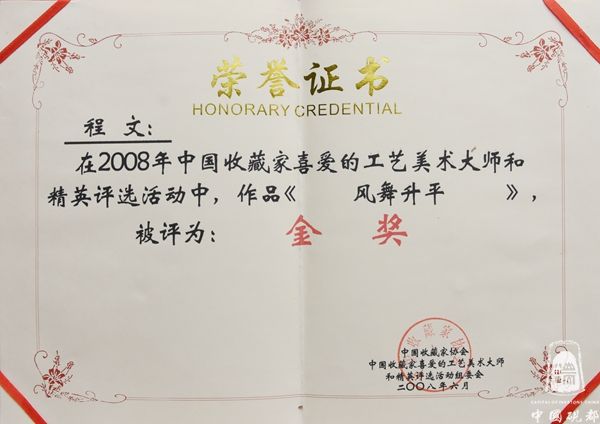 荣誉证书
HONORARY CREDENTIAL
程 文：
在2008年中国收藏家喜爱的工艺美术大师和
精英评选活动中，作品《 风舞升平 》，
被评为： 金 奖
中国收藏家协会
中国收藏家喜爱的工艺美术大师
和精英评选活动组委会
二〇〇八年六月
CAPITAL OF INKSTONE CHINA
中国砚都